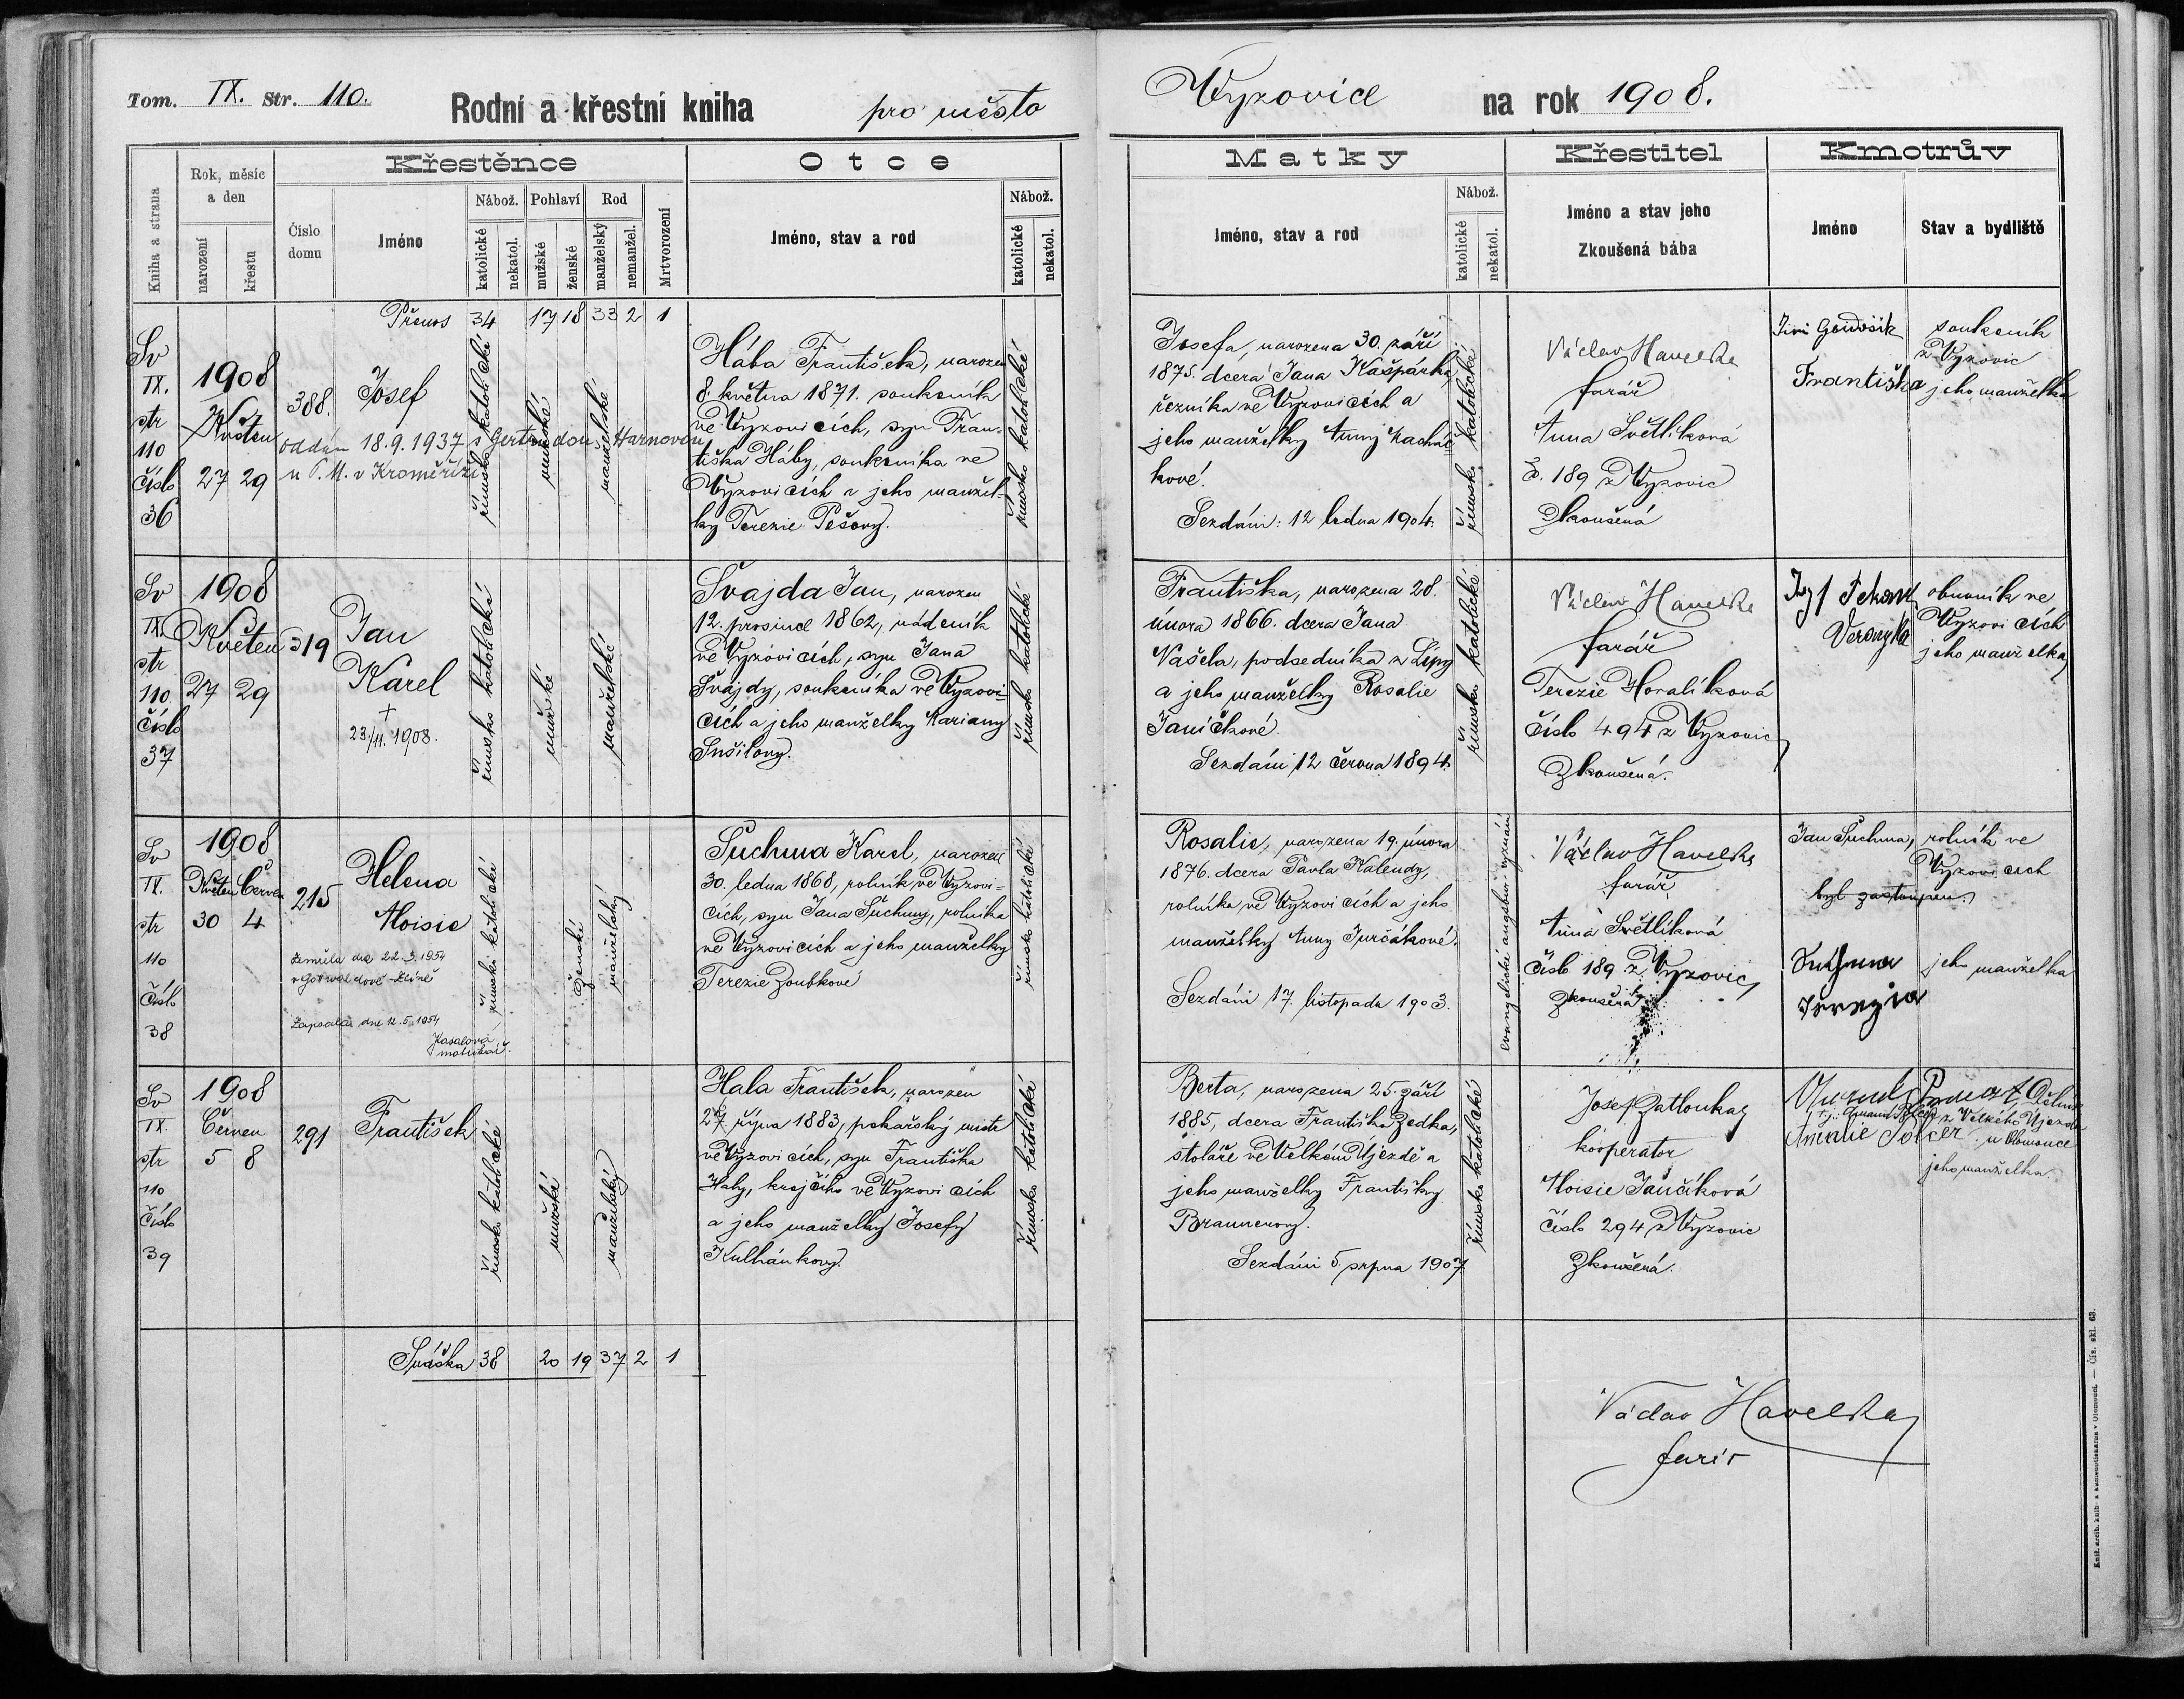 Tom. IX. Str. 110.
Rodní a křestní kniha pro město
Vyzovice na rok 1908.
Kniha a strana
Rok, měsíc a den
narození
křestu
Číslo domu
Křestěnce
Jméno
Nábož.
katolické
nekatol.
Pohlaví
mužské
ženské
Rod
manželský
nemanžel.
Mrtvorození
Otce
Jméno, stav a rod
Nábož.
katolické
nekatol.
Matky
Jméno, stav a rod
Nábož.
katolické
nekatol.
Křestitel
Jméno a stav jeho
Zkoušená bába
Kmotrův
Jméno
Stav a bydliště
Přenos 34 17 18 33 2 1
Sv
IX.
str
110
číslo
36
1908
Květen
27 29
388.
Josef
oddán 18.9.1937 s Gertrudou Harnovou
u P. M. v Kroměříži
římsko katolické
mužské
manželské
Hába František, narozen
8. května 1871. soukeník
ve Vyzovicích, syn Fran-
tiška Háby, soukeníka ve
Vyzovicích a jeho manžel-
ky Terezie Pešovy.
římsko katolické
Josefa, narozena 30. září
1875. dcera Jana Kašpárka,
řezníka ve Vyzovicích a
jeho manželky Anny
kové.
Sezdáni: 12 ledna 1904.
římsko katolické
Václav Havelka
farář
Anna Světlíková
č. 189 z Vyzovic
Zkoušená
Jiří
soukeník
z Vyzovic
Františka jeho manželka
Sv
IX.
str
110.
číslo
37
1908
Květen
27 29
319
Jan
Karel
+
23/11. 1908.
římsko katolické
mužské
manželské
Švajda Jan, narozen
12. prosince 1862, nádeník
ve Vyzovicích, syn Jana
Švajdy, soukeníka ve Vyzovi-
cích a jeho manželky Mariany
Sušilovy.
římsko katolické
Františka, narozena 28.
února 1866. dcera Jana
Vašela, podsedníka z Lípy
a jeho manželky Rosalie
Janíčkové.
Sezdáni 12 června 1894.
římsko katolické
Václav Havelka
farář
Terezie Horalíková
číslo 494 z Vyzovic
Zkoušená.
obuvník ve
Vyzovicích
Veronyka jeho manželka
Sv
IX.
str
110
Číslo
38
1908
Květen Červen
30 4
215
Helena
Aloisie
Zemřela dne 22.3.1954
v Gottwaldově-Zlíně
Zapsala: dne 12.5.1954
matrikář.
římsko katolické
ženské
manželský
Šuchma Karel, narozen
30. ledna 1868, rolník ve Vyzovi-
cích, syn Jana Šuchmy, rolníka
ve Vyzovicích a jeho manželky
Terezie Zoubkové
římsko katolické
Rosalie, narozena 19. února
1876. dcera Pavla Kalendy,
rolníka ve Vyzovicích a jeho
manželky Anny Jurčákové.
Sezdáni 17. listopadu 1903.
evangelické augsbur. vyznání
Václav Havelka
farář
Anna Světlíková
číslo 189 z Vyzovic
Zkoušená
Jan Šuchma, rolník ve
Vyzovicích
byl zastoupen.
Suchma jeho manželka
Terezia
Sv
IX.
str
110
Číslo
39
1908
Červen
5 8
291
František
římsko katolické
mužské
manželský
Hala František, narozen
27. října 1883, pekařský mistr
ve Vyzovicích, syn Františka
Haly, krejčího ve Vyzovicích
a jeho manželky Josefy
Kulhánkovy.
římsko katolické
Berta, narozena 25. září
1885, dcera Františka Zedka,
stoláře ve Velkém Újezdě a
jeho manželky Františky
Braunerovy.
Sezdáni 5. srpna 1907.
římsko katolické
Josef Zatloukal
kooperator
Aloisie Jančíková
číslo 294 z Vyzovic
Zkoušená.
z Velkého Újezda
Amalie u Olomouce
jeho manželka.
Snáška 38 20 19 37 2 1
Václav Havelka
farář
Kníž. arcib. knih- a kamenotiskárna v Olomouci. — Čís. skl. 63.